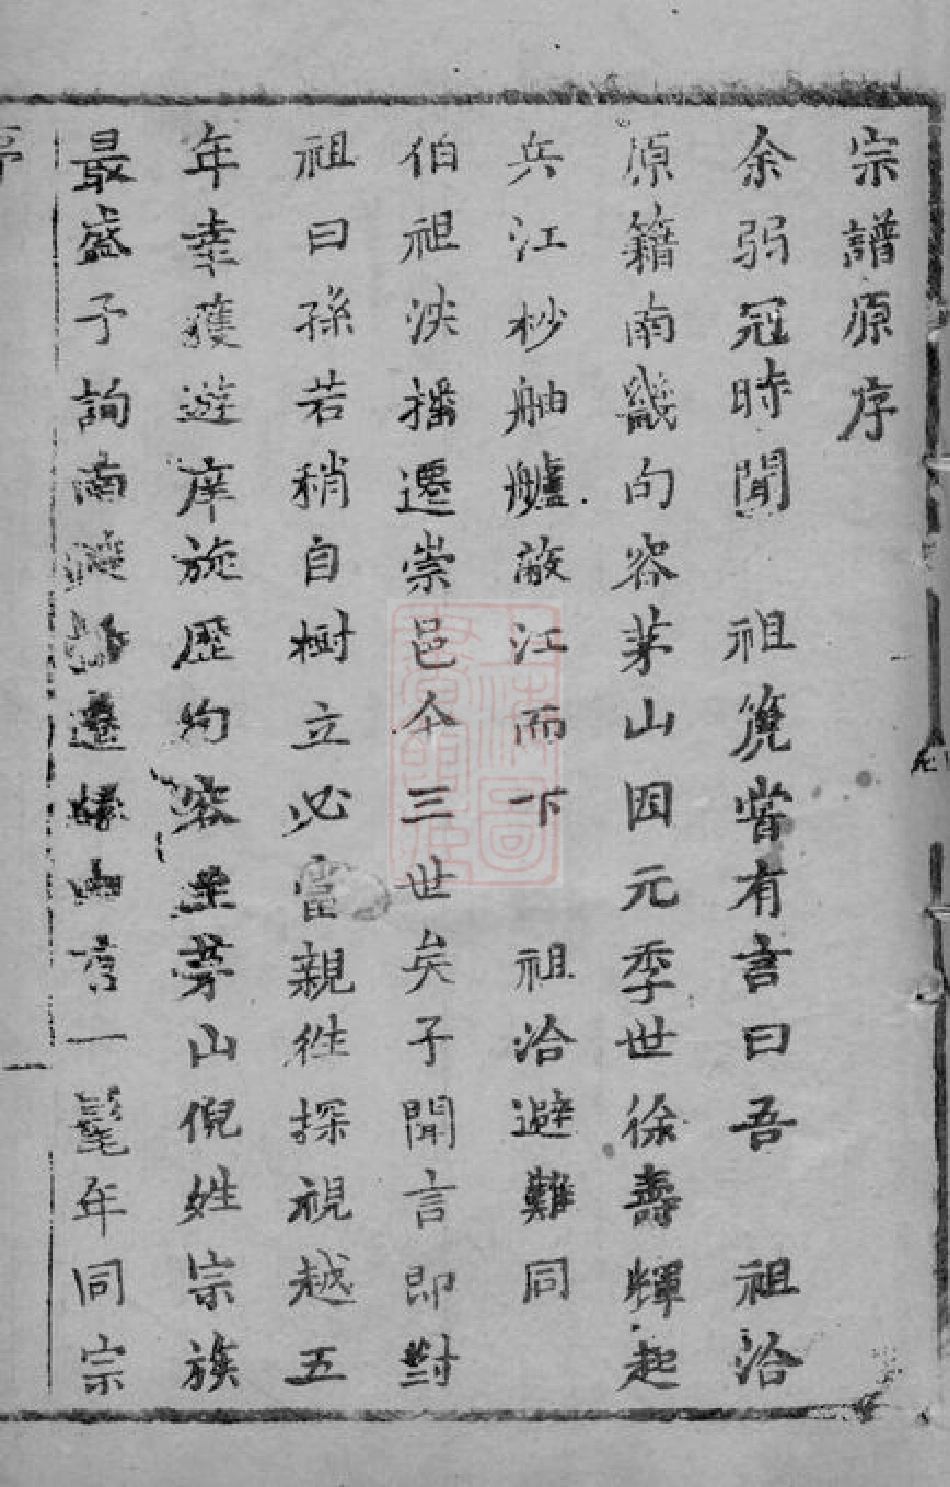 宗譜原序
余弱冠時聞 祖箎嘗有言曰吾 祖洽
原籍南畿句容茅山因元季世徐壽輝起
兵江杪舳艫蔽江而下 祖洽避難同
伯祖泱播遷崇邑今三世矣予聞言即對
祖曰孫若稍自樹立必當親徃探視越五
年幸獲遊庠旋歷句容至茅山倪姓宗族
最盛予詢南遷山言一髦年同宗
序
一